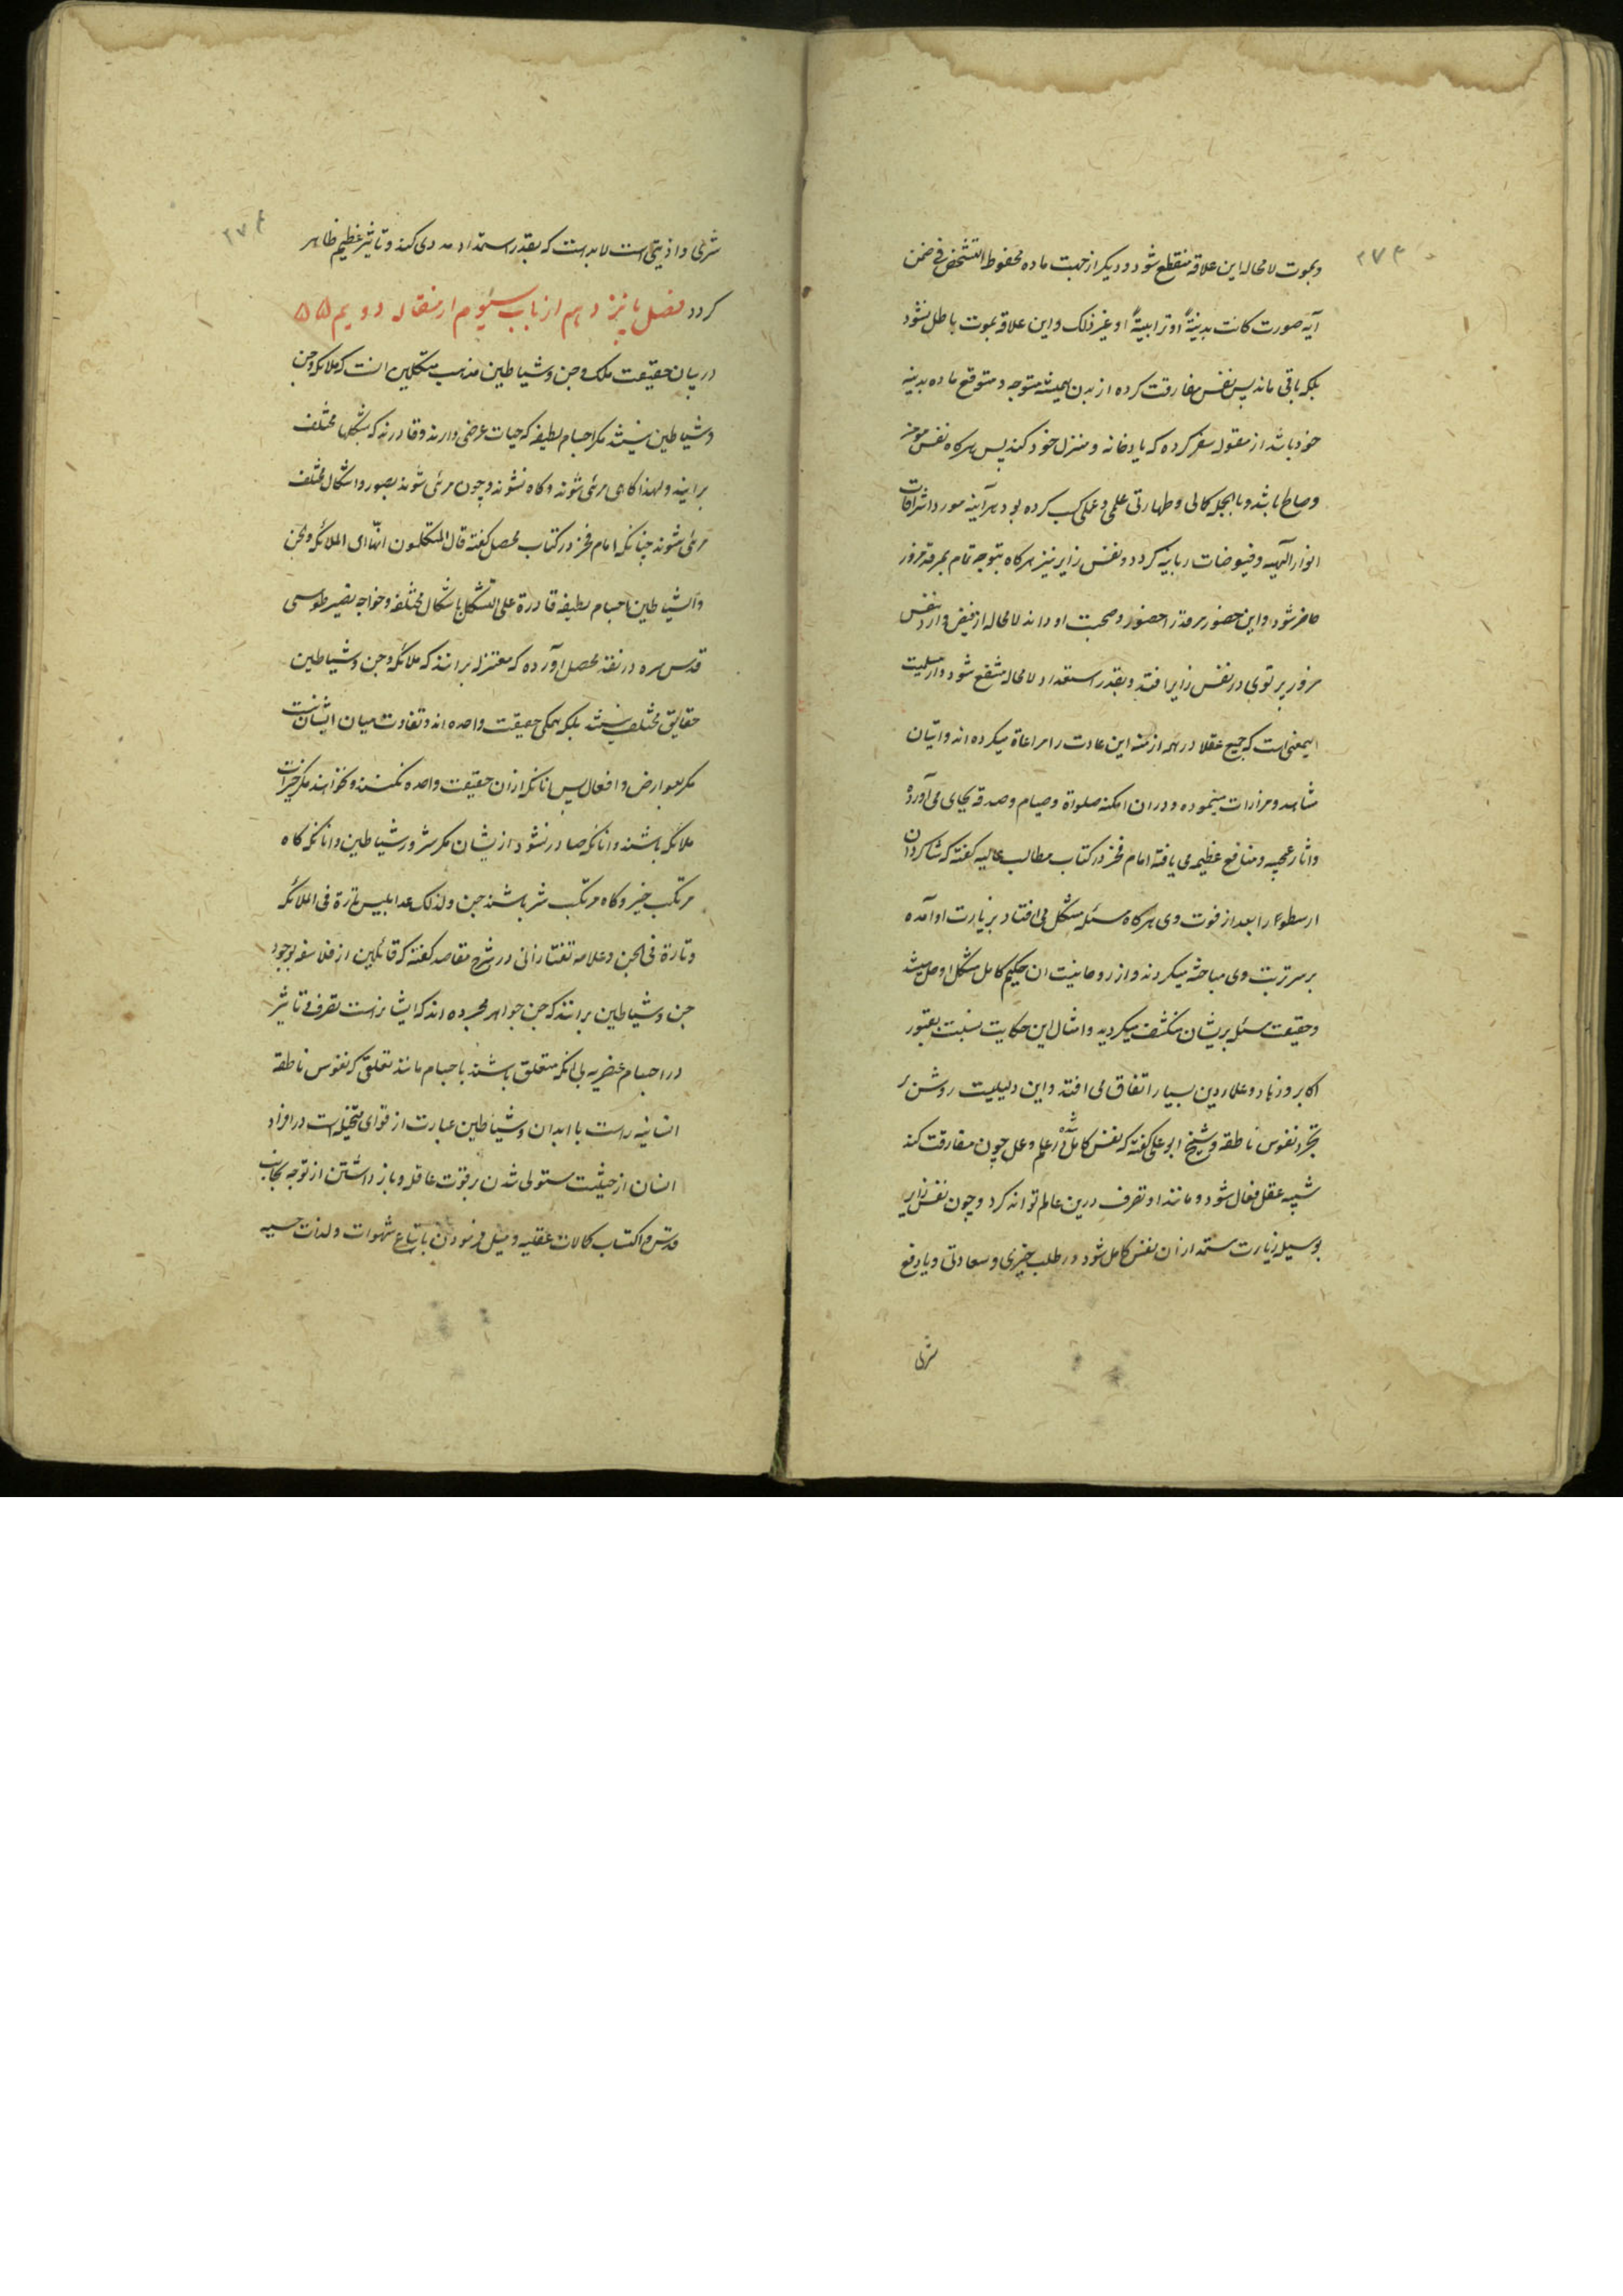 ۲۷۳
و بموت لامحاله این علاقه منقطع شود و دیگر از جهت ماده محفوظ التشخص فی ضمن
آیه صورت کانت بدنیةً او ترابیةً او غیر ذلک و این علاقه بموت باطل نشود
بلکه باقی ماند پس نفس مفارقت کرده از بدن همیشه متوجه و متوقع ماده بدنیه
خود باشد از مقوله سفر کرده که یاد خانه و منزل خود کند پس هرگاه نفس مزور
و صالح باشد و بالجمله کمالی و طهارتی علمی و عملی کسب کرده بود هرآینه مورد اشراقات
انوار الهیه و فیوضات ربانیه کردد و نفس زایر نیز هرگاه بتوجه تام بمرقد مزور
حاضر شود و این حضور مرقد را حضور و صحبت او داند لامحاله از فیض وارد نفس
مزور پرتوی در نفس زایر افتد و بقدر استعداد لامحاله منتفع شود و از
اینمعنی است که جمیع عقلا در همه ازمنه این عادت را مراعاة میکرده اند و اتیان
مشاهد و مزارات مینموده و در ان امکنه صلواة و صیام و صدقه بجای می آورده
و اثار عجیبه و منافع عظیمه می یافته امام فخر در کتاب مطالب عالیه کفته که شاکردان
ارسطو را بعد از فوت وی هرگاه مسئله مشکل می افتاد بزیارت او آمده
بر سر تربت وی مباحثه میکردند و از روحانیت ان حکیم کامل مشکل او حل میشد
و حقیقت مسئله بریشان منکشف میکردید و امثال این حکایت نسبت بقبور
اکابر و زهاد و علماء دین بسیار اتفاق می افتد و این دلیلیست روشن بر
تجرد نفوس ناطقه و شیخ ابو علی کفته که نفس کامل شده در علم و عمل چون مفارقت کند
شبیه عقل فعال شود و مانند او تصرف درین عالم تواند کرد و چون نفس زایر
بوسیله زیارت مستمد از ان نفس کامل شود در طلب خیری و سعادتی و یا دفع
شری
۲۷۴
شری و اذیتی است لابد است که بقدر استمداد مددی کند و تاثیر عظیم ظاهر
کردد فصل پانزدهم از باب سیوم از مقاله دویم ۵۵
در بیان حقیقت ملک و جن و شیاطین مذهب متکلمین انست که ملائکه و جن
و شیاطین نیستند مکر اجسام لطیفه که حیات عرضی دارند و قادرند که بشکلهای مختلف
برایند و لهذا کاهی مرئی شوند و کاه نشوند و چون مرئی شوند بصور و اشکال مختلف
مرئی شوند چنانکه امام فخر در کتاب محصل کفته قال المتکلمون انها ای الملائکة و الجن
و الشیاطین اجسام لطیفه قادرة علی التشکل باشکال مختلفه و خواجه نصیر طوسی
قدس سره در نقد محصل آورده که معتزله برانند که ملائکه و جن و شیاطین
حقایق مختلف نیستند بلکه همکی حقیقت واحده اند و تفاوت میان ایشان نیست
مکر بعوارض و افعال پس انانکه از ان حقیقت واحده نکنند و نخواهند مکر خیرات
ملائکه باشند و انانکه صادر نشود از یشان مکر شرور شیاطین و انانکه کاه
مرتکب خیر و کاه مرتکب شر باشند جن و لذلک عد ابلیس تارة فی الملائکه
و تارة فی الجن و علامه تفتازانی در شرح مقاصد کفته که قائلین از فلاسفه بوجود
جن و شیاطین برانند که جن جواهر مجرده اند که ایشانراست تصرف و تاثیر
در اجسام عنصریه بی انکه متعلق باشند باجسام مانند تعلقی که نفوس ناطقه
انسانیه راست با ابدان و شیاطین عبارت از قوای متخیله است در افراد
انسان از حیثیت مستولی شدن بر قوت عاقله و باز داشتن از توجه بجانب
قدس و اکتساب کمالات عقلیه و میل فرمودن باتباع شهوات و لذات حسیه